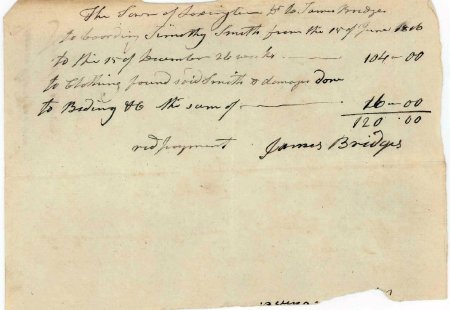 The Town of Lexington Dr to James Bridges
to boarding Timothy Smith from the 15 of June 1806
to the 15 of December 26 weeks — 104-00
to Clothing found said Smith & damages done
to Beding &c the sum of — 16-00
120.00
recd payment James Bridges